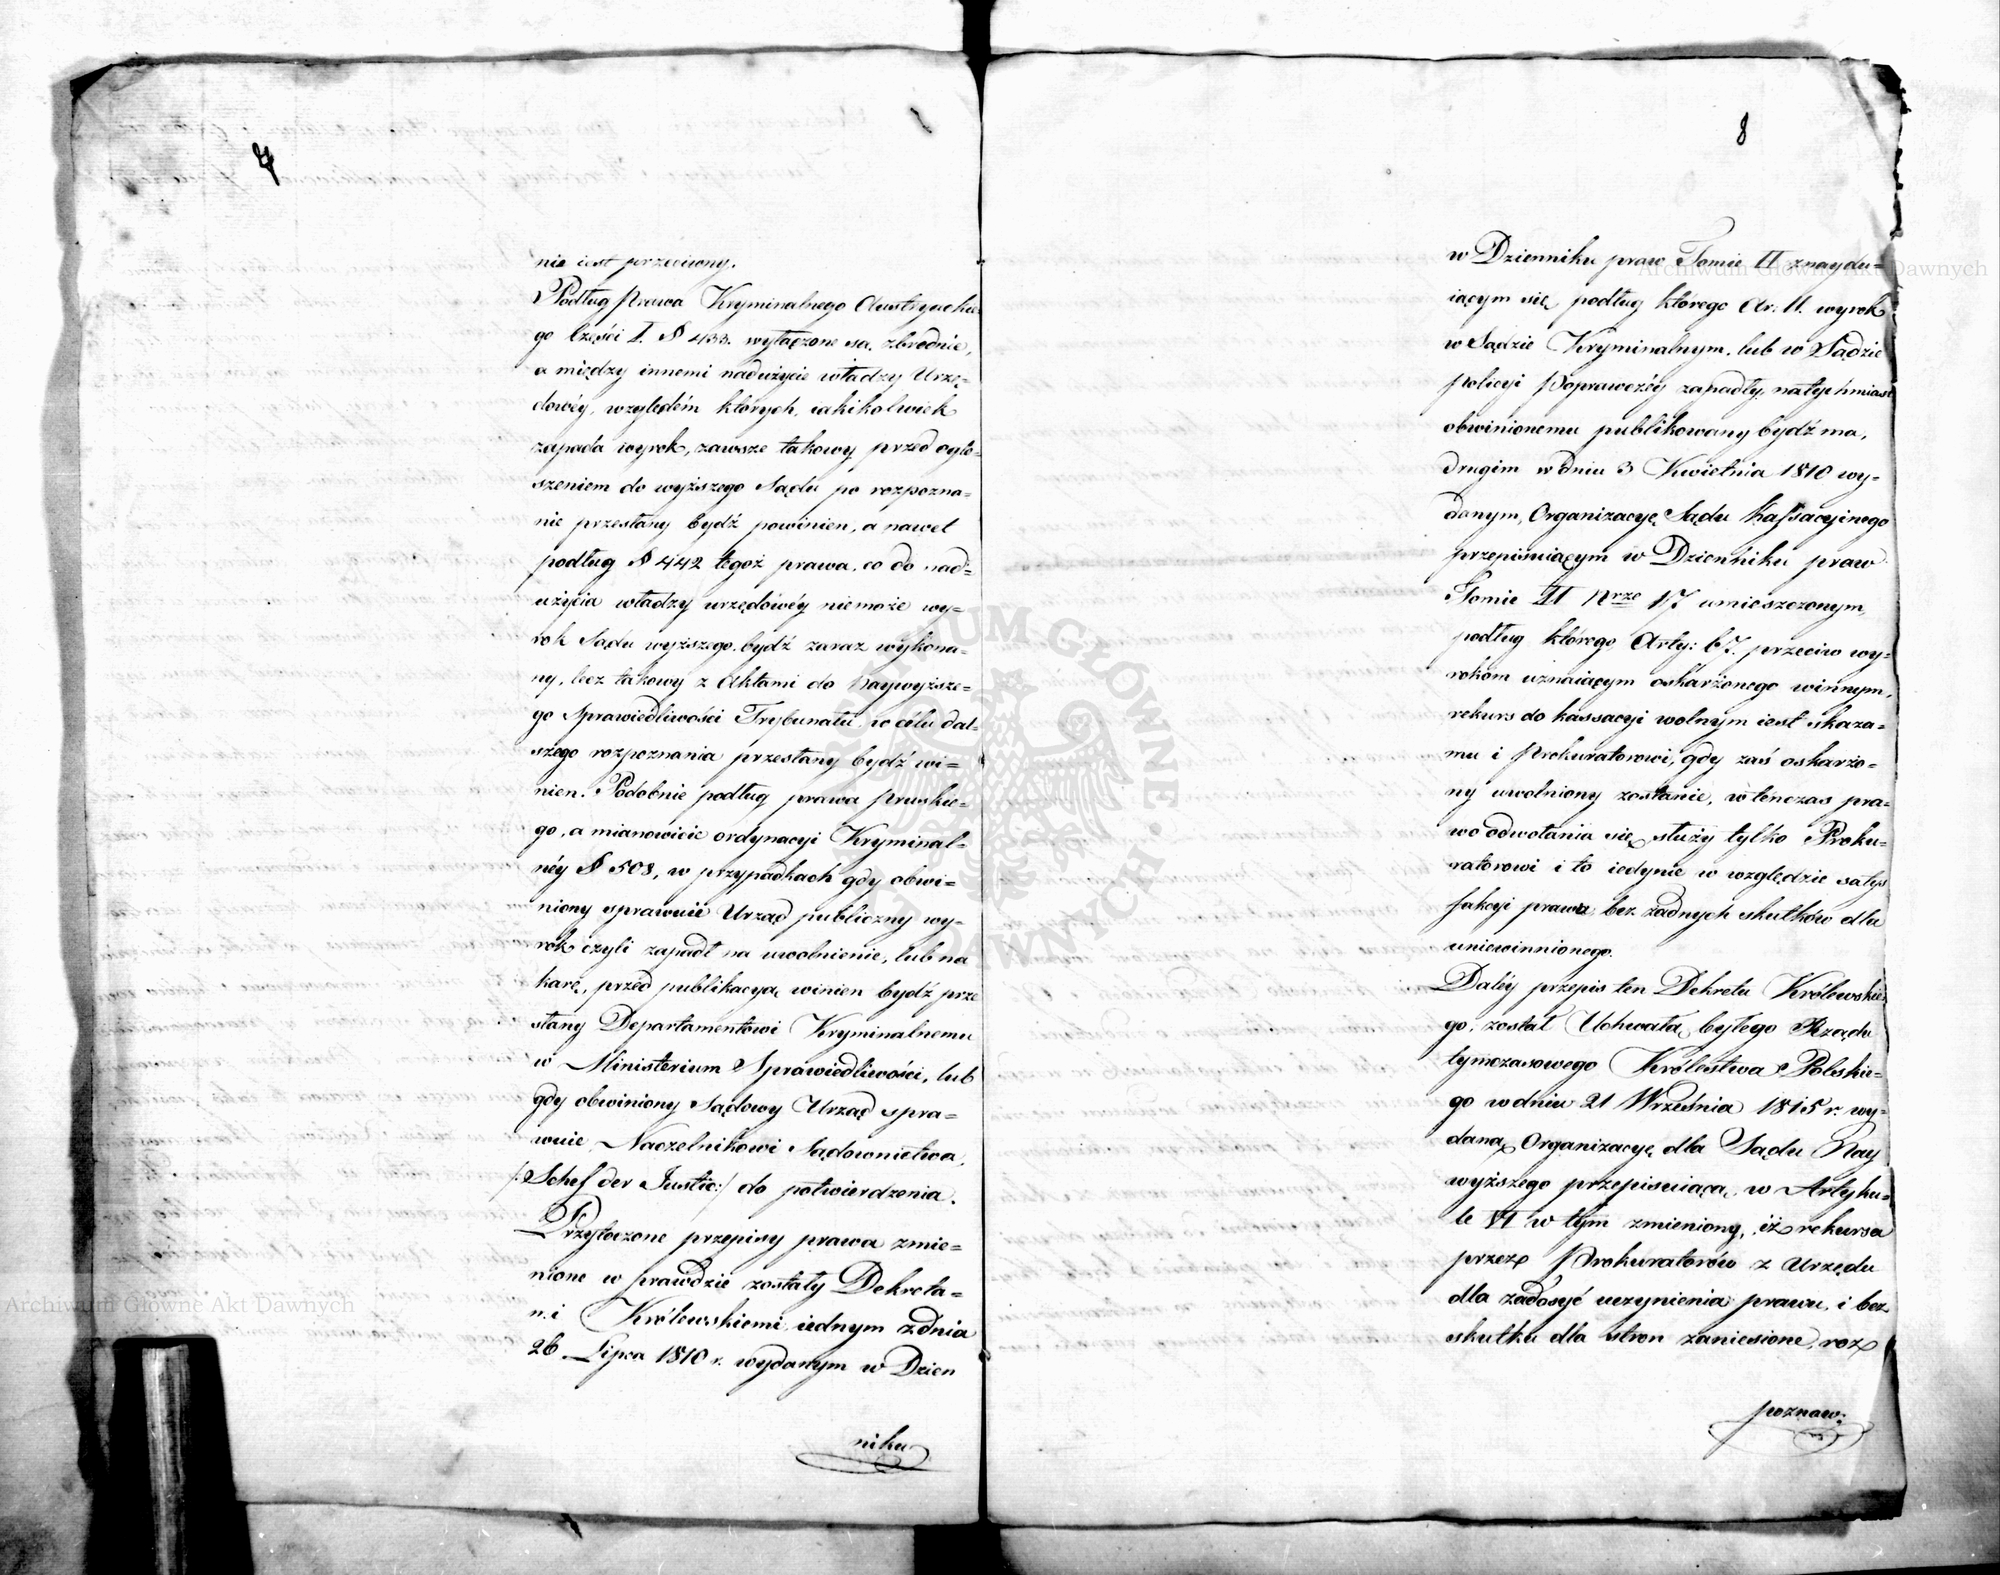 nie iest przeciwny.
Podług Prawa Kryminalnego Austryackie
go Części I. § 433. wyłączone są zbrodnie,
a między innemi nadużycie władzy Urzę-
dowéy, względem których, iakikolwiek
zapada wyrok, zawsze takowy przed ogło-
szeniem do wyższego Sądu po rozpozna-
nie przesłany bydź powinien, a nawet
podług § 442 tegoż prawa, co do nad-
użycia władzy urzędowéy niemoże wy-
rok Sądu wyższego bydź zaraz wykona-
ny, lecz takowy z Aktami do Naywyższe-
go Sprawiedliwości Trybunału w célu dal-
szego rozpoznania przesłany bydź wi-
nien. Podobnie podług prawa Pruskie-
go, a mianowicie ordynacyi Kryminal-
néy § 508, w przypadkach gdy obwi-
niony sprawuie Urząd publiczny wy-
rok czyli zapadł na uwolnienie, lub na
karę, przed publikacyą winien bydź prze
słany Departamentowi Kryminalnemu
w Ministerium Sprawiedliwości, lub
gdy obwiniony Sądowy Urząd spra-
wuie Naczelnikowi Sądownictwa,
/: Schef der Justic:/ do potwierdzenia.
Przytoczone przepisy prawa zmie-
nione w prawdzie zostały Dekreta-
mi Królewskiemi iednym z dnia
26 Lipca 1810 r. wydanym w Dzien
niku
8
w Dzienniku praw Tomie II znaydu-
iącym się, podług którego Ar. 11. wyrok
w Sądzie Kryminalnym, lub w Sądzie
Policyi Poprawczéy zapadły, natychmiast
obwinionemu publikowany bydź ma,
drugim w dniu 3 Kwietnia 1810 wy-
danym, Organizacyę Sądu Kassacyinego
przepisuiącym w Dzienniku praw
Tomie II Nrze 17 umieszczonym,
podług którego Arty: 67. przeciw wy-
rokom uznaiącym oskarżonego winnym,
rekurs do kassacyi wolnym iest skaza-
mu i Prokuratorowi, gdy zaś oskarżo-
ny uwolniony zostanie, wtenczas pra-
wo odwołania się służy tylko Proku-
ratorowi i to iedynie w względzie satys
fakcyi prawa, bez żadnych skutków dla
uniewinnionego.
Daléy przepis ten Dekretu Królewskie
go, został Uchwałą byłego Rządu
tymczasowego Królestwa Polskie-
go w dniu 21 Września 1815 r. wy-
daną, Organizacyę dla Sądu Nay
wyższego przepisuiącą, w Artyku-
le VI w tym zmieniony, iż rekursa
przez Prokuratorów z Urzędu
dla zadosyć uczynienia prawu, i bez
skutku dla stron zaniesione, roz
poznaw:
Archiwum Główne Akt Dawnych
Archiwum Główne Akt Dawnych
ARCHIWUM GŁÓWNE AKT DAWNYCH